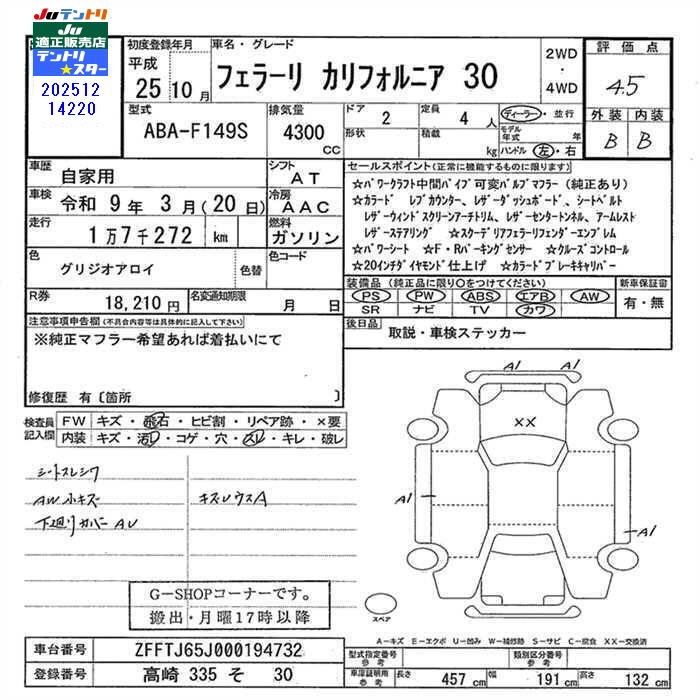 JUテントリ
JU
適正販売店
テントリ
★スター
202512
14220
初度登録年月
平成
25 10 月
車名・グレード
フェラーリ カリフォルニア 30
2WD
・
4WD
評価点
4.5
外装 内装
B B
型式
ABA-F149S
排気量
4300
cc
ドア
2
形状
定員
4 人
積載
kg
ディーラー・並行
モデル年式 年
ハンドル 左・右
車歴
自家用
シフト
AT
車検
令和 9年 3月(20日)
冷房
AAC
走行
1万7千272 km
燃料
ガソリン
色
グリジオアロイ
色替
色コード
R券
18,210円
名変通知期限
月 日
セールスポイント(正常に機能するものに限ります)
☆パワークラフト中間パイプ可変バルブマフラー(純正あり)
☆カラード レブカウンター、レザーダッシュボード、シートベルト
レザーウィンドスクリーンアーチトリム、レザーセンタートンネル、アームレスト
レザーステアリング ☆スクーデリアフェラーリフェンダーエンブレム
☆パワーシート ☆F・Rパーキングセンサー ☆クルーズコントロール
☆20インチダイヤモンド仕上げ ☆カラードブレーキキャリパー
装備品(純正品に限り○をつけてください)
PS PW ABS エアB AW
SR ナビ TV カワ
新車保証書
有・無
後日品
取説・車検ステッカー
注意事項申告欄(不具合内容等は具体的に記入して下さい)
※純正マフラー希望あれば着払いにて
修復歴 有〔箇所 〕
検査員
記入欄
FW キズ・飛石・ヒビ割・リペア跡・×要
内装 キズ・汚レ・コゲ・穴・スレ・キレ・破レ
シートスレシワ
AW小キズ
キズレウスA
下廻りカバーAU
A1
A1
XX
A1
A1
スペア
G-SHOPコーナーです。
搬出・月曜17時以降
A-キズ E-エクボ U-凹み W-補修跡 S-サビ C-腐食 XX-交換済
車台番号
ZFFTJ65J000194732
登録番号
高崎 335 そ 30
型式指定番号
参考
類別区分番号
参考
車庫証明用
参考
長さ 457 cm
幅 191 cm
高さ 132 cm